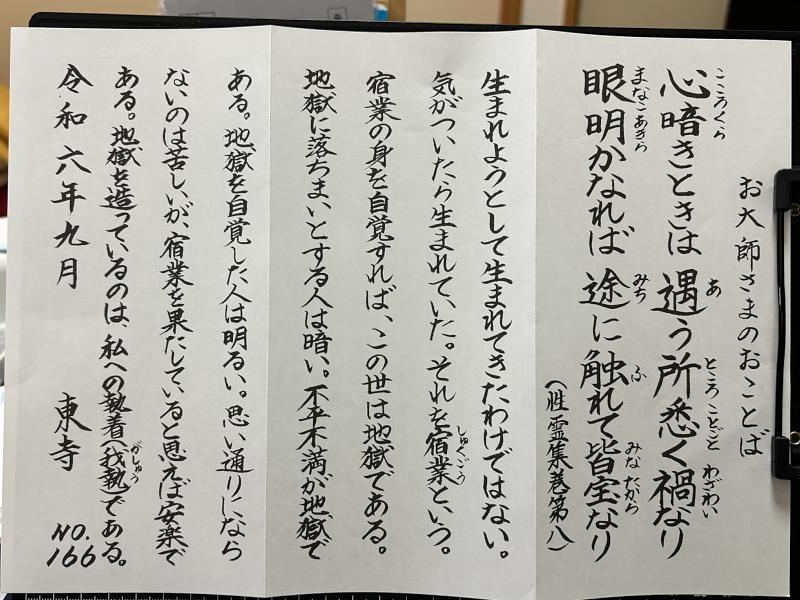 お大師さまのおことば
心暗きときは 遇う所悉く禍なり
こころくら あ ところ ことごと わざわい
眼明かなれば 途に触れて皆宝なり
まなこあきら みち ふ みな たから
(性霊集巻第八)
生まれようとして生まれてきたわけではない。
気がついたら生まれていた。それを宿業という。
しゅくごう
宿業の身を自覚すれば、この世は地獄である。
地獄に落ちまいとする人は暗い。不平不満が地獄で
ある。地獄を自覚した人は明るい。思い通りになら
ないのは苦しいが、宿業を果たしていると思えば安楽で
ある。地獄を造っているのは、私への執着(我執)である。
がしゅう
令和六年九月 東寺
NO.
166